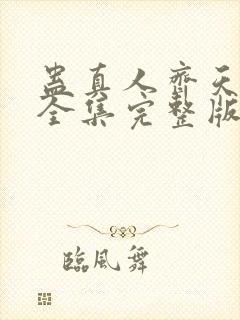 蛊真人齊天
全集完整版
臨風舞